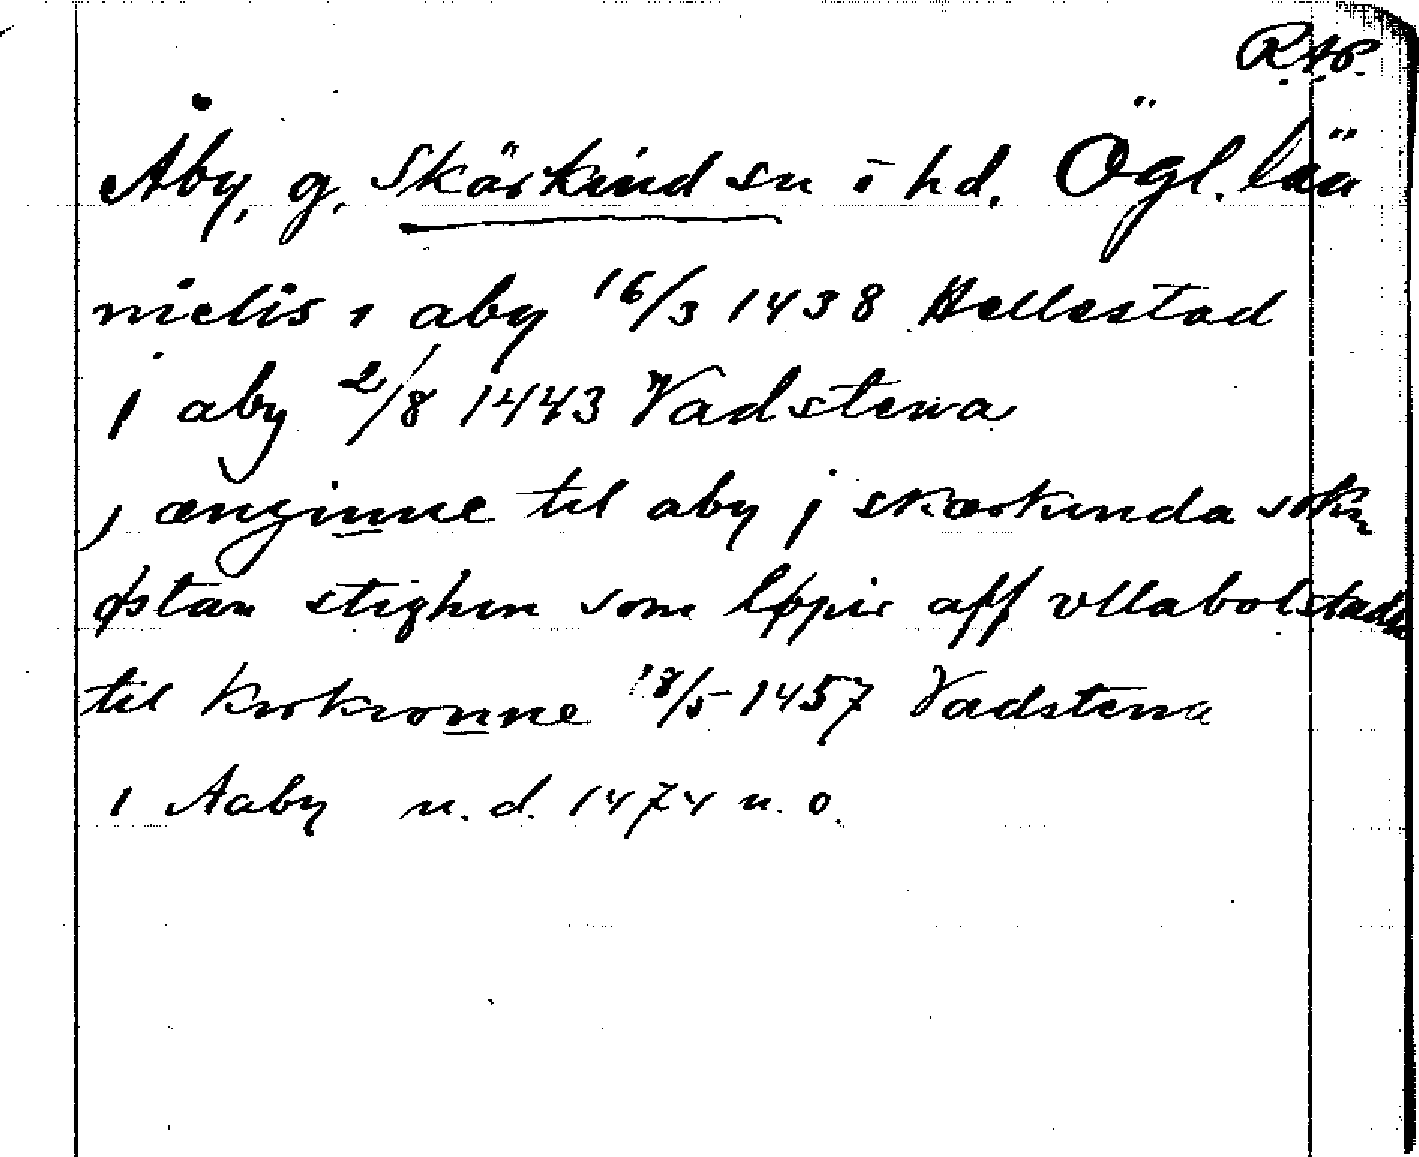 R.A.P.
Åby, g. Skärkind sn ī hd. Ögl. län
nielis ı aby 16/3 1438 Hellestad
j aby 2/8 1443 Vadstena
j ænginne til aby j skærkinda sokn
østan stighen som løpir aff vllabolstadh
til krokronne 18/5 1457 Vadstena
ı Aaby u. d. 1474 u. o.